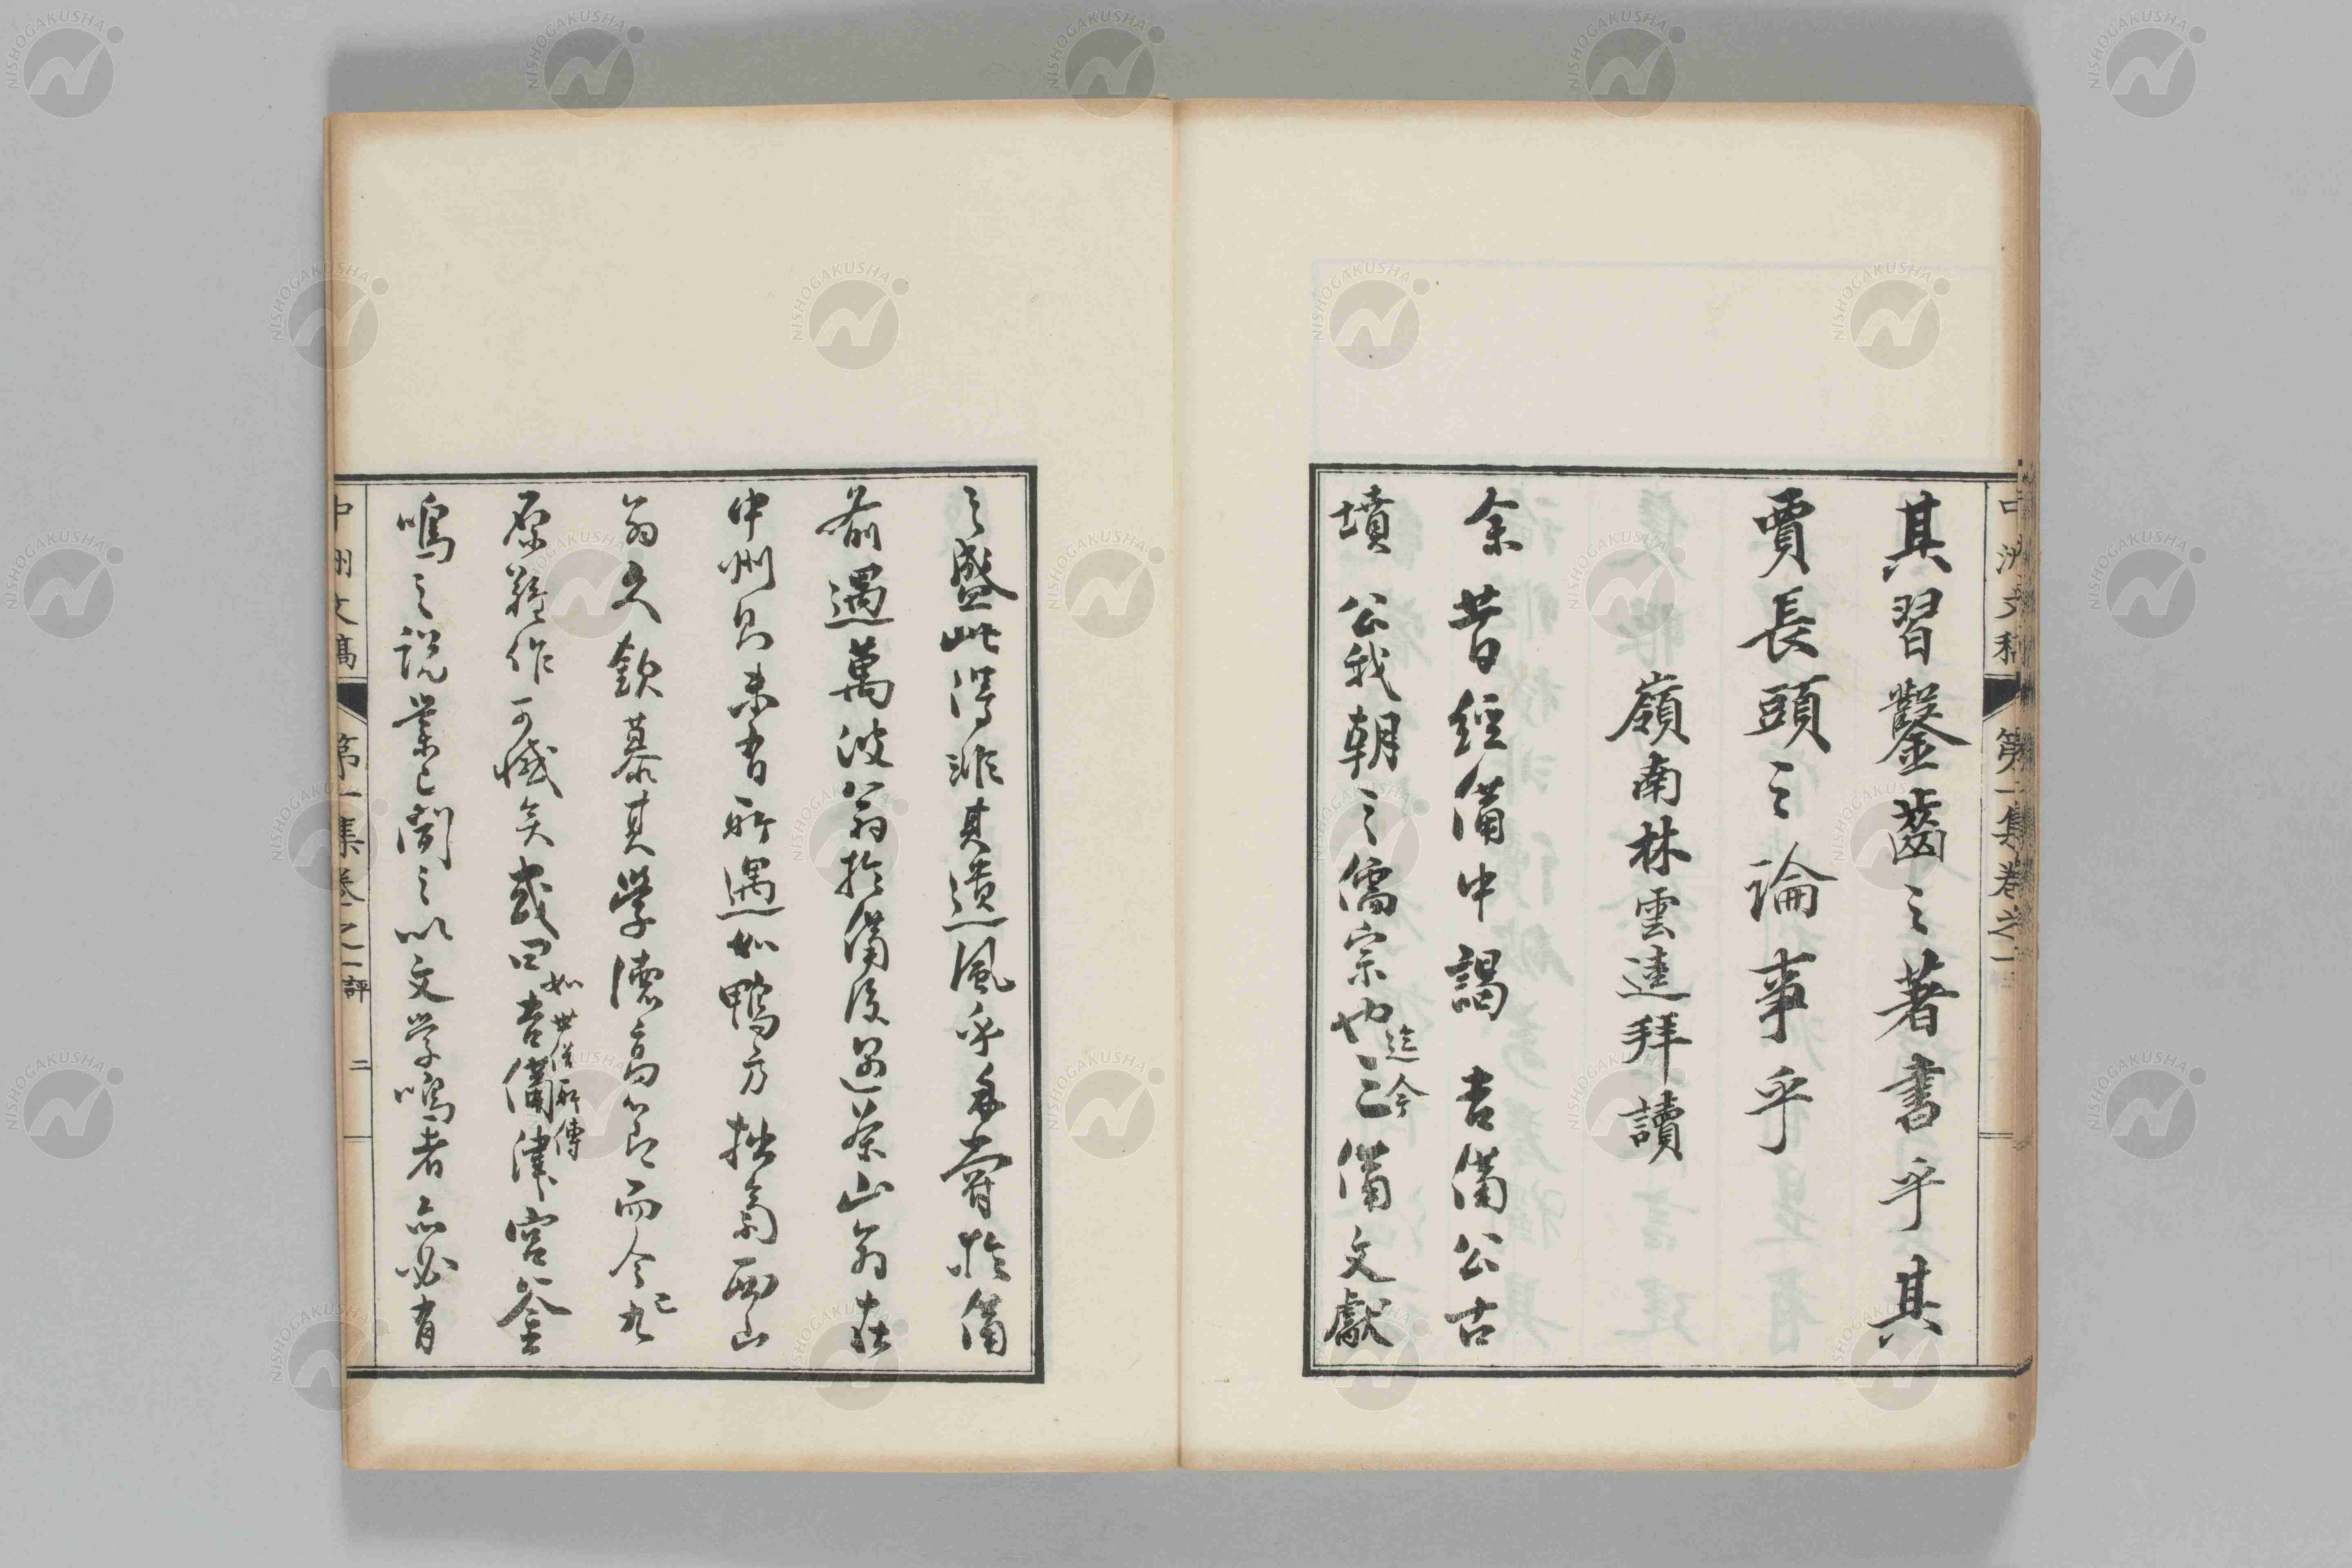 其習鑿齒之著書乎其
賈長頭之論事乎
嶺南林雲逵拜讀
余昔經備中謁 吉備公古
墳 公我朝之儒宗也迄今三備文獻
之盛此得非其遺風乎余嘗於備
前遇萬波翁於備後遇茶山翁在
中州則未有所遇如鴨方拙齋西山
翁久欽慕其學德高節而今已九
原難作可憾矣或曰如世俗所傳吉備津宮釜
鳴之說業已聞之以文学鳴者亦必有
中洲文稿 第一集卷之一
中洲文稿 第一集卷之一 評 二
NISHOGAKUSHA